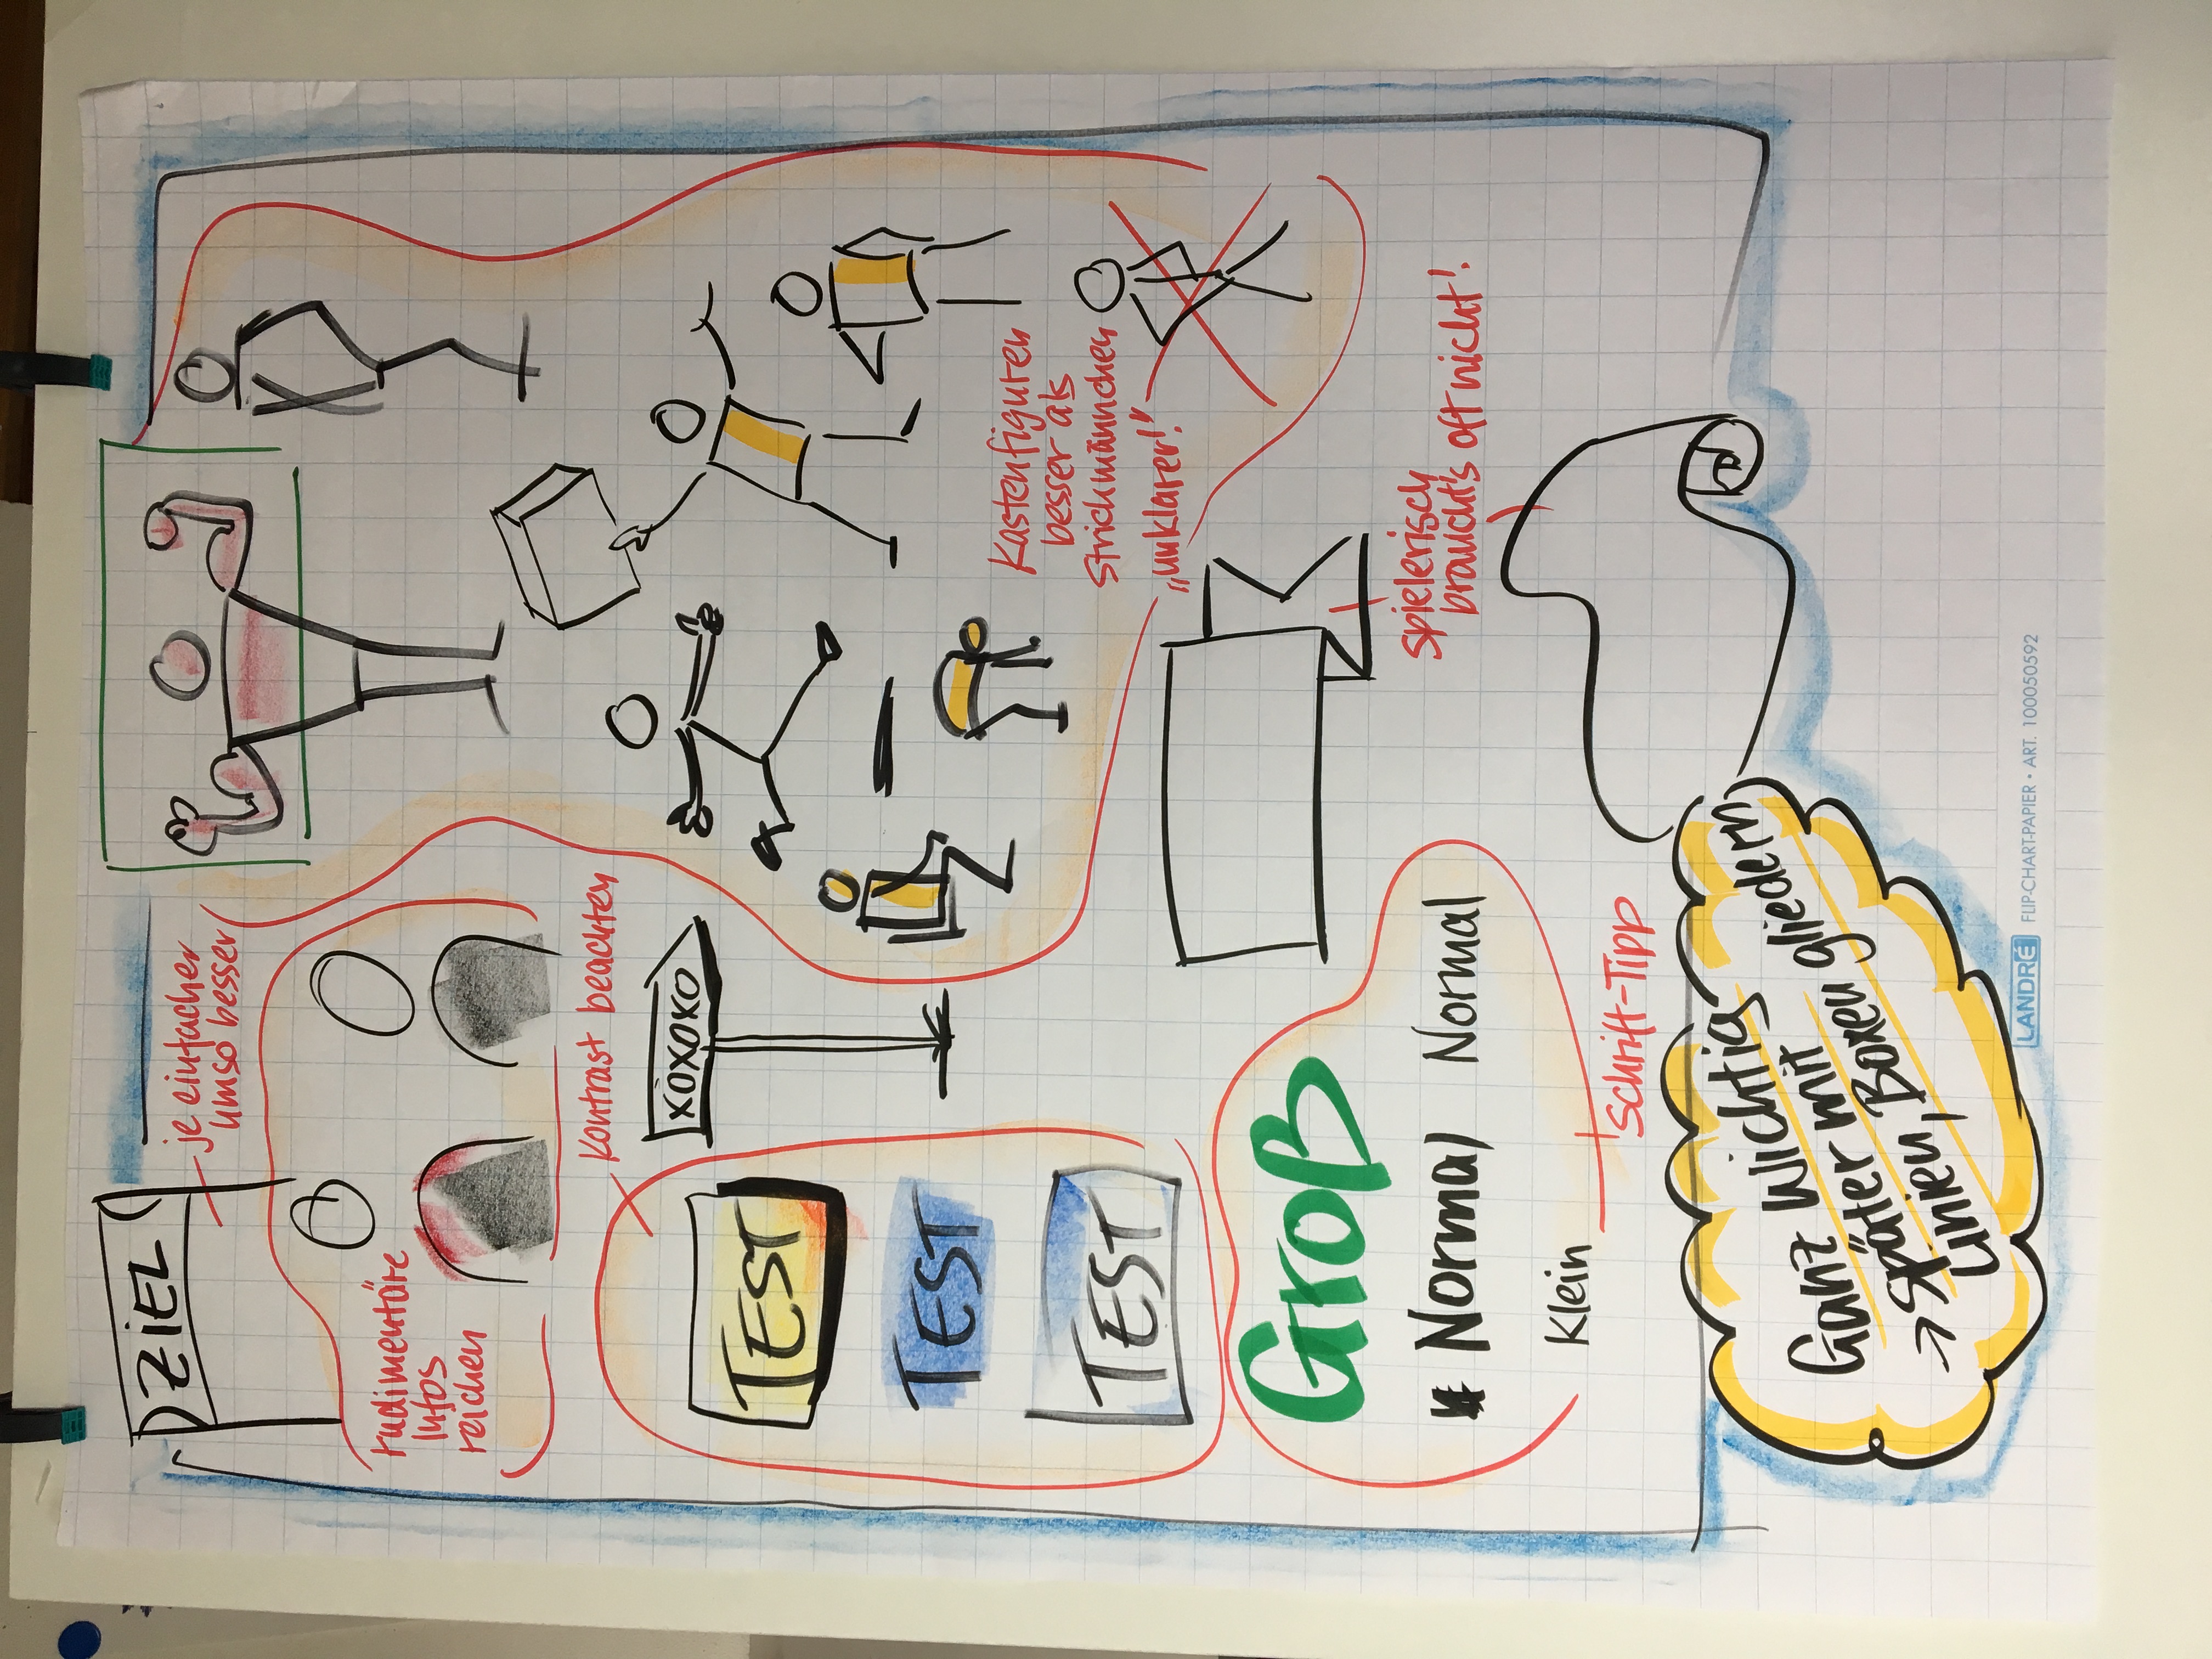 ZIEL
je einfacher
umso besser
rudimentäre
Infos
reichen
Kontrast beachten
XOXOXO
TEST
TEST
TEST
Kastenfiguren
besser als
Strichmännchen
„unklarer!"
spielerisch
braucht's oft nicht!
Groß
Normal Normal
Klein
Schrift-Tipp
Ganz wichtig
→ Später mit
Linien, Boxen gliedern
LANDRÉ FLIP-CHART-PAPIER • ART. 100050592